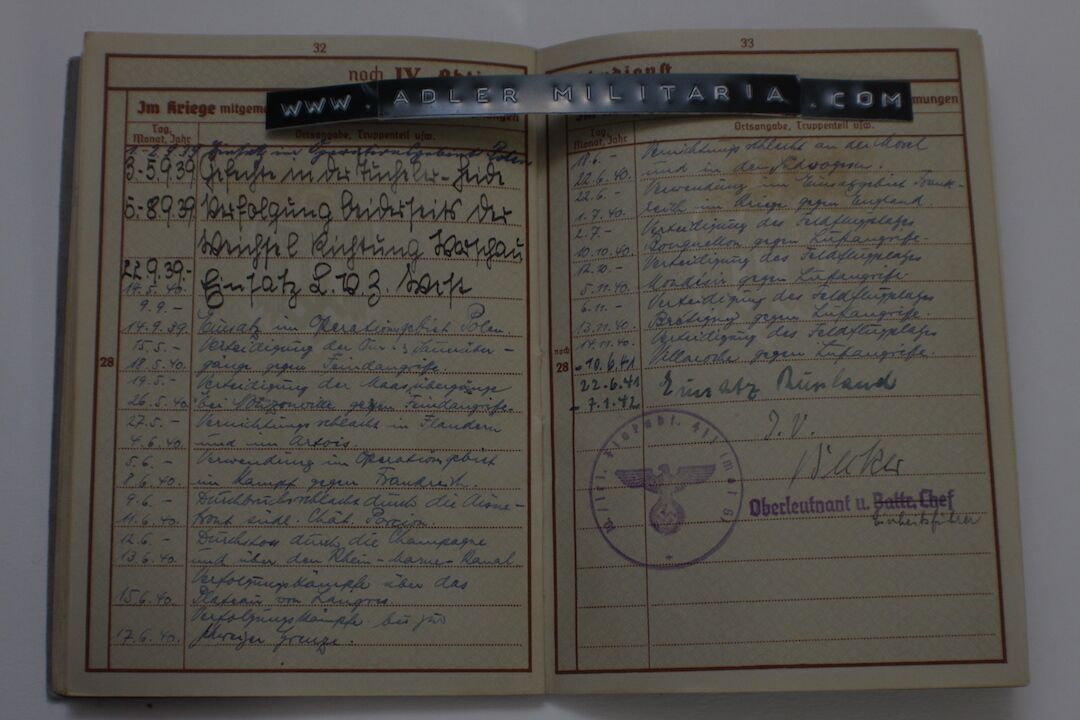 32
noch IV.
WWW. ADLER MILITARIA .COM
Im Kriege
Tag, Monat, Jahr
Ortsangabe, Truppenteil usw.
Einsatz im Operationsgebiet Polen
3.-5.9.39 Gefechte in der Tucheler-Heide
5.-8.9.39 Verfolgung beiderseits der
Weichsel Richtung Warschau
22.9.39.-
Einsatz L.V.Z. West
9.9.-
14.9.39. Einsatz im Operationsgebiet Polen.
15.5.- Verteidigung der
28
18.5.40. gänge gegen Feindangriffe.
19.5.- Verteidigung der Maasübergänge
26.5.40. bei Nouzonville gegen Feindangriffe.
27.5.- Vernichtungsschlacht in Flandern
4.6.40. und im Artois.
5.6.- Verwendung im Operationsgebiet
8.6.40. im Kampf gegen Frankreich.
9.6.- Durchbruchsschlacht durch die Aisne-
11.6.40. front südl. Chât. Porcien.
12.6.- Durchstoss durch die Champagne
13.6.40. und über den Rhein-Marne-Kanal
Verfolgungskämpfe über das
15.6.40. Plateau von Langres.
Verfolgungskämpfe bis zur
17.6.40. schweizer Grenze.
33
Tag, Monat, Jahr
Ortsangabe, Truppenteil usw.
18.6.- Vernichtungsschlacht an der Mosel
22.6.40. und in den Vogesen.
22.6.- Verwendung im Einsatzgebiet Frank-
1.7.40. reich im Kriege gegen England.
2.7.- Verteidigung des Feldflugplatzes
10.10.40. gegen Luftangriffe.
12.10.- Verteidigung des Feldflugplatzes
5.11.40. Mondésir gegen Luftangriffe.
6.11.- Verteidigung des Feldflugplatzes
13.11.40. Brétigny gegen Luftangriffe.
14.11.40. Verteidigung des Feldflugplatzes
noch 28
-10.6.41 Villacoublay gegen Luftangriffe.
22.6.41 Einsatz Russland
-7.1.42.
I.V.
Oberleutnant u. Battr. Chef
Einheitsführer